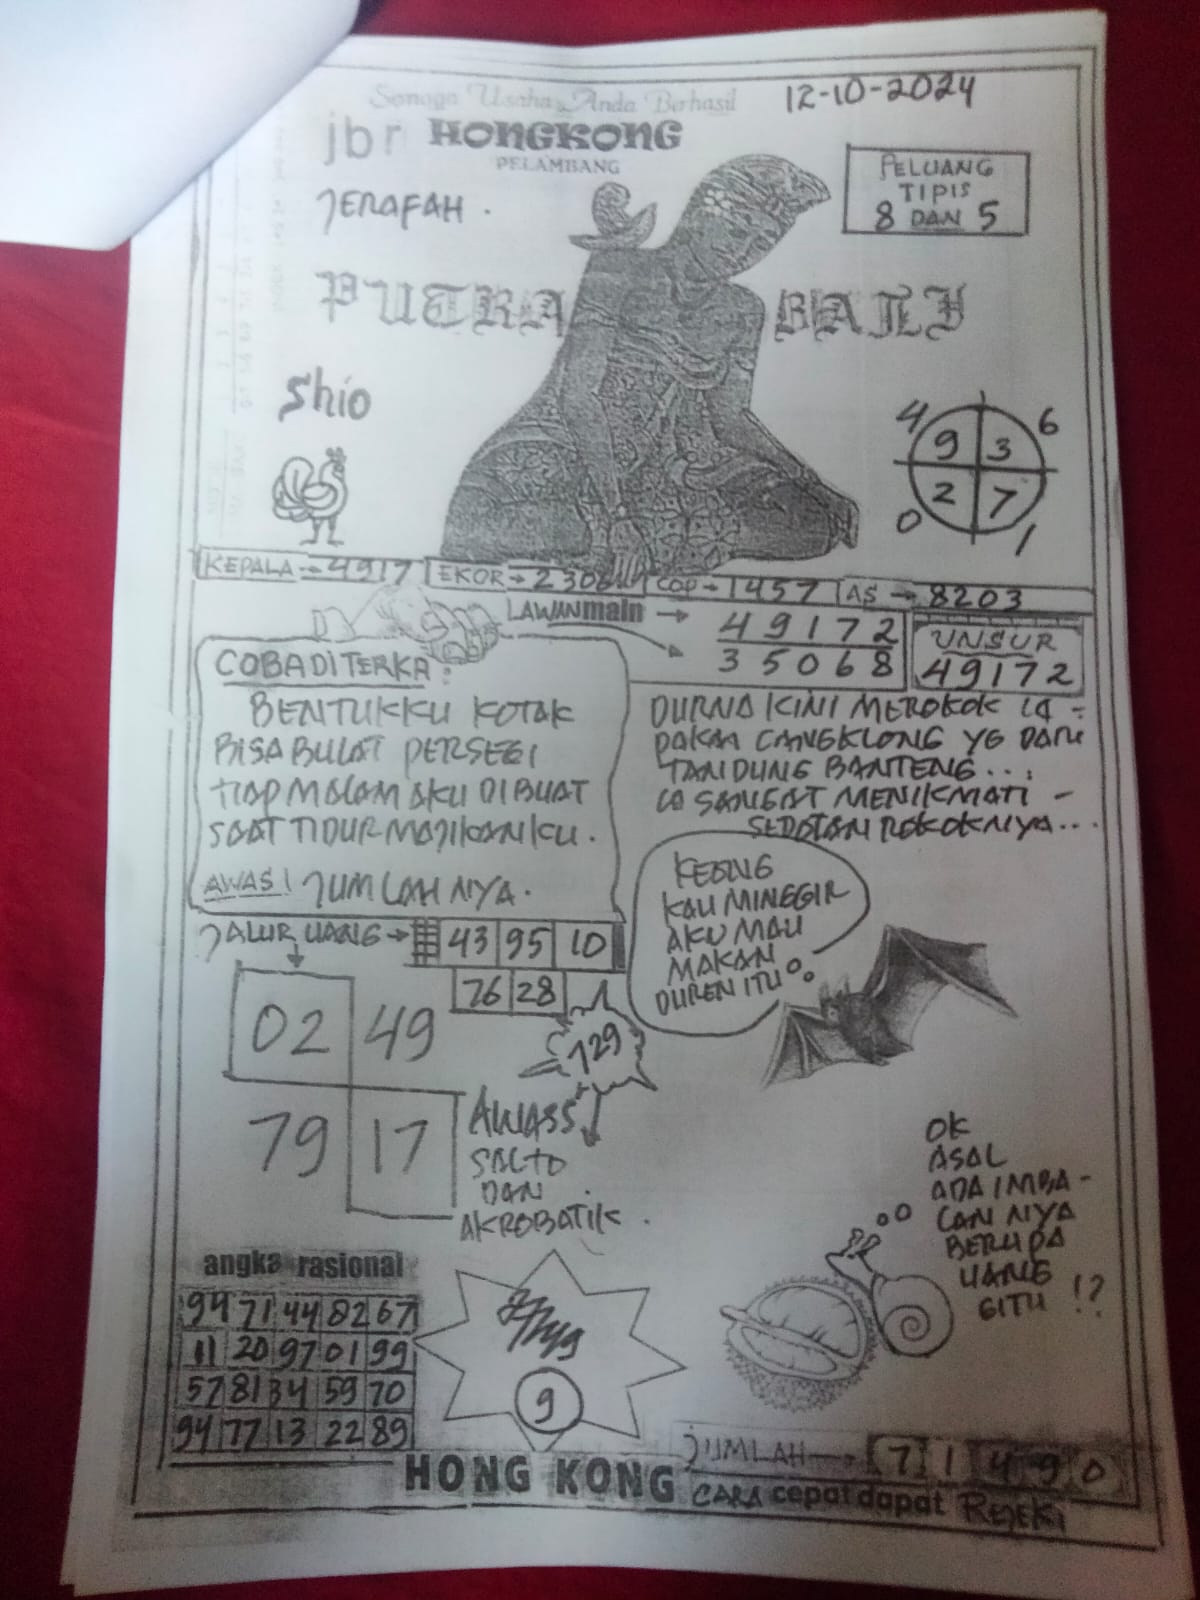 Semoga Usaha Anda Berhasil
12-10-2024
jbr HONGKONG
PELAMBANG
JERAFAH.
PELUANG
TIPIS
8 DAN 5
PUTRA BALI
Shio
4 6
9 3
2 7
0 1
KEPALA → 4917
EKOR →
COP → 1457
AS → 8203
LAWAN main →
49172
35068
UNSUR
49172
COBA DITERKA:
BENTUKKU KOTAK
BISA BULAT PERSEGI
TIAP MALAM AKU DIBUAT
SAAT TIDUR MAJIKANKU.
AWAS! JUMLAHNYA.
DURNA KINI MEROKOK IA -
PAKAI CANGKLONG YG DARI
TANDUNG BANTENG...
IA SANGAT MENIKMATI -
SEDOTAN ROKOKNYA...
KEONG
KAU MINGGIR
AKU MAU
MAKAN
DUREN ITU
JALUR UANG → 43 95 10
76 28
02 49
129
79 17
AWASS
SALTO
DAN
AKROBATIK.
OK
ASAL
ADA IMBA-
LAN NYA
BERUPA
UANG
GITU !?
angka rasional
94 71 44 82 67
11 20 97 01 99
57 81 34 59 70
94 77 13 22 89
9
JUMLAH → 7 1 4 9 0
HONG KONG CARA cepat dapat REJEKI